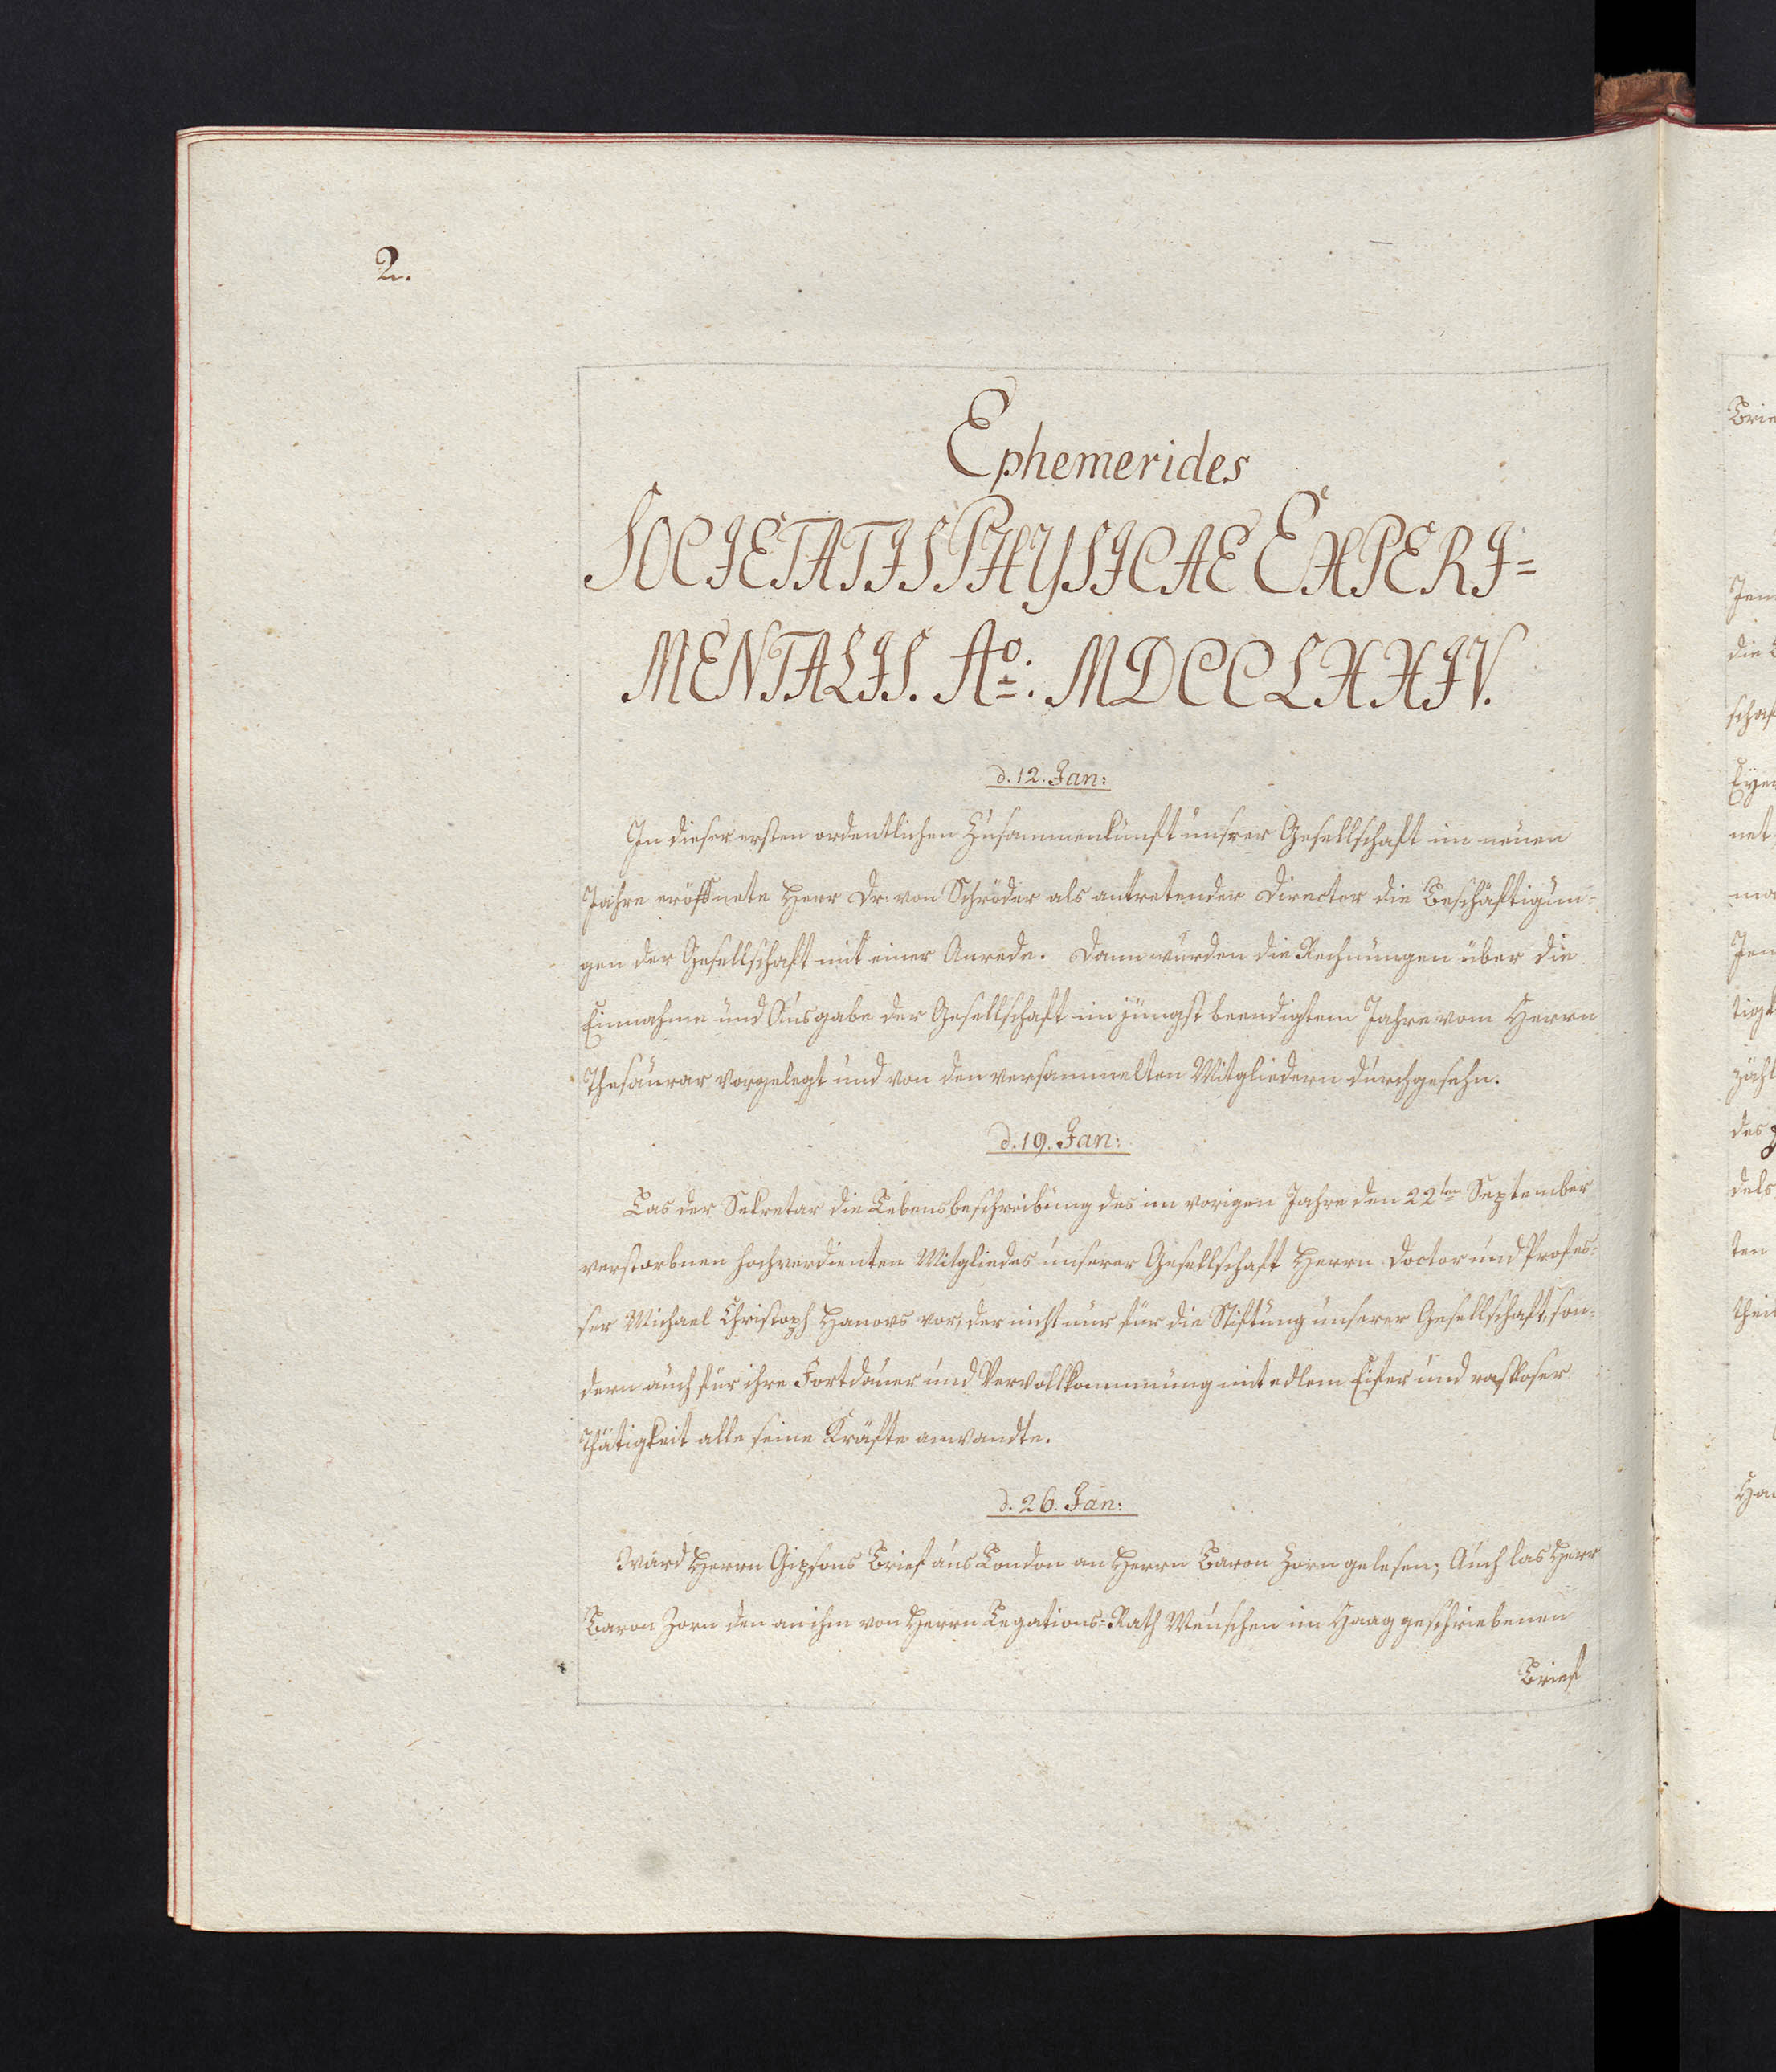 2.
Ephemerides
SOCIETATIS PHYSICAE EXPERI=
MENTALIS. Ao: MDCCLXXIV.
d. 12. Jan:
In dieser ersten ordentlichen Zusammenkunft unsrer Gesellschaft im neuen
Jahre eröffnete Herr Dr. von Schröder als antretender Director die Beschäftigun-
gen der Gesellschaft mit einer Anrede. Dann wurden die Rechnungen über die
Einnahme und Ausgabe der Gesellschaft im jüngst beendigtem Jahre vom Herrn
Thesaurar vorgelegt und von den versammelten Mitgliedern durchgesehn.
d. 19. Jan:
Las der Sekretar die Lebensbeschreibung des im vorigen Jahre den 22ten September
verstorbnen hochverdienten Mitgliedes unserer Gesellschaft Herrn Doctor und Profes-
sor Michael Christoph Hanovs vor, der nicht nur für die Stiftung unserer Gesellschaft, son-
dern auch für ihre Fortdauer und Vervollkommnung mit edlem Eifer und rastloser
Thätigkeit alle seine Kräfte anwandte.
d. 26. Jan:
Ward Herrn Gipsons Brief aus London an Herrn Baron Zorn gelesen; Auch las Herr
Baron Zorn den an ihm von Herrn Legations=Rath Meuschen im Haag geschriebenen
Brief